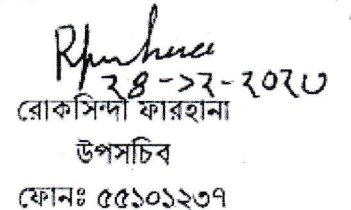 ২৪-১২-২০২৩
রোকসিন্দা ফারহানা
উপসচিব
ফোনঃ ৫৫১০১২৩৭